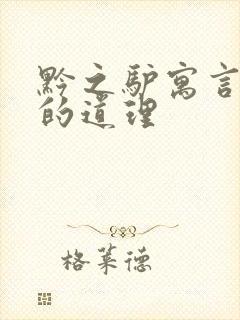 黔之驴寓言
的道理
格莱德